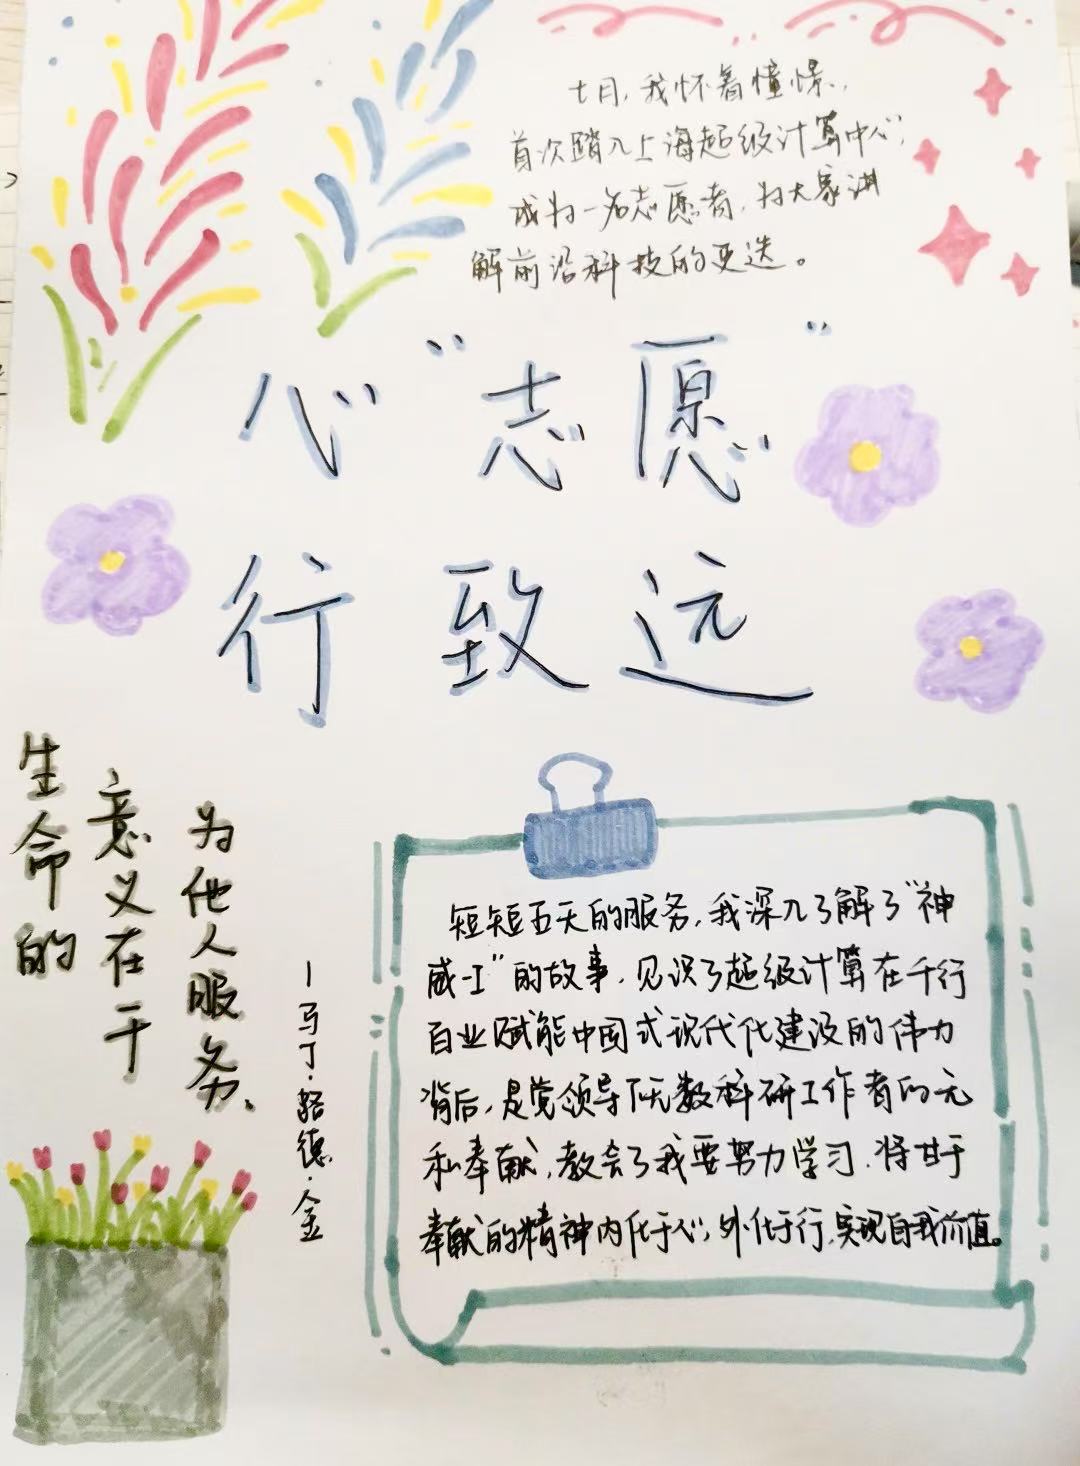 七月，我怀着憧憬，
首次踏入上海超级计算中心，
成为一名志愿者，为大家讲
解前沿科技的更迭。
心“志愿”
行致远
生命的
意义在于
为他人服务、
—马丁·路德·金
短短五天的服务，我深入了解了“神
威-I”的故事，见识了超级计算在千行
百业赋能中国式现代化建设的伟力
背后，是党领导下无数科研工作者的无
私奉献，教会了我要努力学习，将甘于
奉献的精神内化于心，外化于行，实现自我价值。